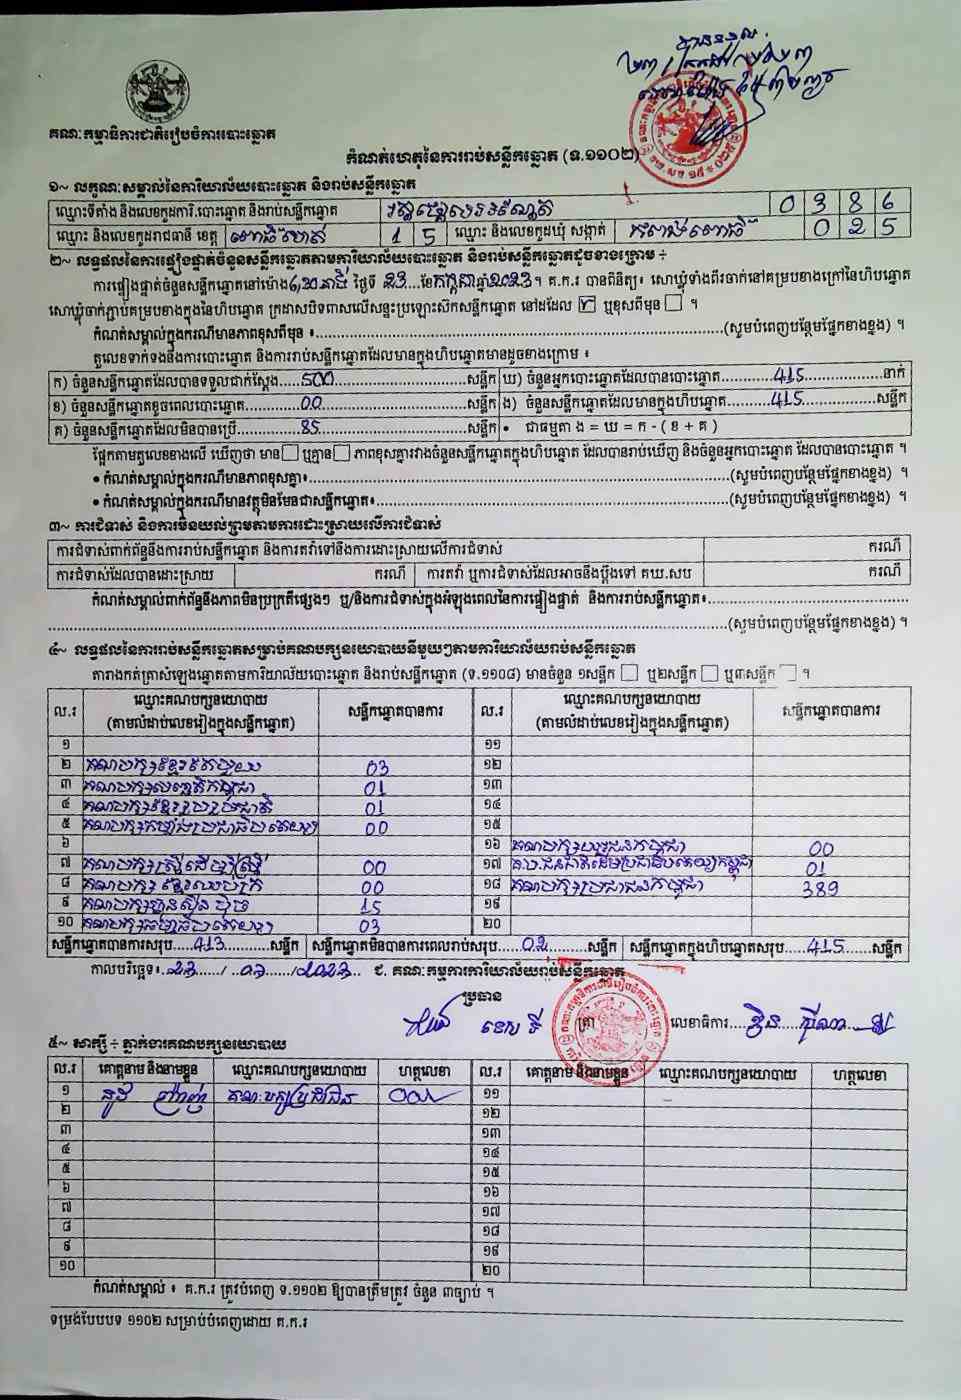 បានទទួល
២៣ កក្កដា
គណៈកម្មាធិការជាតិរៀបចំការបោះឆ្នោត
កំណត់ហេតុនៃការរាប់សន្លឹកឆ្នោត (ទ.១១០២)
១~ លក្ខណៈសម្គាល់នៃការិយាល័យបោះឆ្នោត និងរាប់សន្លឹកឆ្នោត
ឈ្មោះទីតាំង និងលេខកូដការិ.បោះឆ្នោត និងរាប់សន្លឹកឆ្នោត 0386
ឈ្មោះ និងលេខកូដរាជធានី ខេត្ត ពោធិ៍សាត់ 15 ឈ្មោះ និងលេខកូដឃុំ សង្កាត់ កំពង់ពោធិ៍ 025
២~ លទ្ធផលនៃការផ្ទៀងផ្ទាត់ចំនួនសន្លឹកឆ្នោតតាមការិយាល័យបោះឆ្នោត និងរាប់សន្លឹកឆ្នោតដូចខាងក្រោម ÷
ការផ្ទៀងផ្ទាត់ចំនួនសន្លឹកឆ្នោតនៅម៉ោង ថ្ងៃទី 23 ខែ កក្កដា ឆ្នាំ 2023 ។ គ.ក.រ បានពិនិត្យ៖ សោឃ្លុំទាំងពីរចាក់នៅគម្របខាងក្រៅនៃហិបឆ្នោត
សោឃ្លុំចាក់ភ្ជាប់គម្របខាងក្នុងនៃហិបឆ្នោត ក្រដាសបិទពាសលើសន្ទះប្រឡោះស៊កសន្លឹកឆ្នោត នៅដដែល ☑ ឬខុសពីមុន ☐ ។
កំណត់សម្គាល់ក្នុងករណីមានភាពខុសពីមុន ៖ (សូមបំពេញបន្ថែមផ្នែកខាងខ្នង) ។
តួលេខទាក់ទងនឹងការបោះឆ្នោត និងការរាប់សន្លឹកឆ្នោតដែលមានក្នុងហិបឆ្នោតមានដូចខាងក្រោម ៖
ក) ចំនួនសន្លឹកឆ្នោតដែលបានទទួលជាក់ស្តែង 500 សន្លឹក ឃ) ចំនួនអ្នកបោះឆ្នោតដែលបានបោះឆ្នោត 415 នាក់
ខ) ចំនួនសន្លឹកឆ្នោតខូចពេលបោះឆ្នោត 00 សន្លឹក ង) ចំនួនសន្លឹកឆ្នោតដែលមានក្នុងហិបឆ្នោត 415 សន្លឹក
គ) ចំនួនសន្លឹកឆ្នោតដែលមិនបានប្រើ 85 សន្លឹក • ជាធម្មតា ង = ឃ = ក - ( ខ + គ )
ផ្អែកតាមតួលេខខាងលើ ឃើញថា មាន ☐ ឬគ្មាន ☐ ភាពខុសគ្នារវាងចំនួនសន្លឹកឆ្នោតក្នុងហិបឆ្នោត ដែលបានរាប់ឃើញ និងចំនួនអ្នកបោះឆ្នោត ដែលបានបោះឆ្នោត ។
• កំណត់សម្គាល់ក្នុងករណីមានភាពខុសគ្នា៖ (សូមបំពេញបន្ថែមផ្នែកខាងខ្នង) ។
• កំណត់សម្គាល់ក្នុងករណីមានវត្ថុមិនមែនជាសន្លឹកឆ្នោត៖ (សូមបំពេញបន្ថែមផ្នែកខាងខ្នង) ។
៣~ ការជំទាស់ និងការមិនយល់ព្រមតាមការដោះស្រាយលើការជំទាស់
ការជំទាស់ពាក់ព័ន្ធនឹងការរាប់សន្លឹកឆ្នោត និងការតវ៉ាទៅនឹងការដោះស្រាយលើការជំទាស់ ករណី
ការជំទាស់ដែលបានដោះស្រាយ ករណី ការតវ៉ា ឬការជំទាស់ដែលអាចនឹងប្តឹងទៅ គឃ.សប ករណី
កំណត់សម្គាល់ពាក់ព័ន្ធនឹងភាពមិនប្រក្រតីផ្សេងៗ ឬ/និងការជំទាស់ក្នុងអំឡុងពេលនៃការផ្ទៀងផ្ទាត់ និងការរាប់សន្លឹកឆ្នោត៖
(សូមបំពេញបន្ថែមផ្នែកខាងខ្នង) ។
៤~ លទ្ធផលនៃការរាប់សន្លឹកឆ្នោតសម្រាប់គណបក្សនយោបាយនីមួយៗតាមការិយាល័យរាប់សន្លឹកឆ្នោត
តារាងកត់ត្រាសំឡេងឆ្នោតតាមការិយាល័យបោះឆ្នោត និងរាប់សន្លឹកឆ្នោត (ទ.១១០៨) មានចំនួន ១សន្លឹក ☐ ឬ២សន្លឹក ☐ ឬ៣សន្លឹក ☐ ។
ល.រ ឈ្មោះគណបក្សនយោបាយ (តាមលំដាប់លេខរៀងក្នុងសន្លឹកឆ្នោត) សន្លឹកឆ្នោតបានការ ល.រ ឈ្មោះគណបក្សនយោបាយ (តាមលំដាប់លេខរៀងក្នុងសន្លឹកឆ្នោត) សន្លឹកឆ្នោតបានការ
១ ១១
២ គណបក្សខ្មែរ 03 ១២
៣ គណបក្ស 01 ១៣
៤ គណបក្សខ្មែររួបរួមជាតិ 01 ១៤
៥ គណបក្សកម្លាំងប្រជាធិបតេយ្យ 00 ១៥
៦ ១៦ គណបក្សយុវជនកម្ពុជា 00
៧ គណបក្សស្ត្រីដើម្បីស្ត្រី 00 ១៧ គ.ប.ជនជាតិដើមប្រជាធិបតេយ្យកម្ពុជា 01
៨ គណបក្សខ្មែរឈប់ក្រ 00 ១៨ គណបក្សប្រជាជនកម្ពុជា 389
៩ គណបក្សហ្វ៊ុនស៊ិនប៉ិច 15 ១៩
១០ គណបក្សធម្មាធិបតេយ្យ 03 ២០
សន្លឹកឆ្នោតបានការសរុប 413 សន្លឹក សន្លឹកឆ្នោតមិនបានការពេលរាប់សរុប 02 សន្លឹក សន្លឹកឆ្នោតក្នុងហិបឆ្នោតសរុប 415 សន្លឹក
កាលបរិច្ឆេទ៖ 23 / 07 / 2023 ជ. គណៈកម្មការការិយាល័យរាប់សន្លឹកឆ្នោត
ប្រធាន
ត្រា លេខាធិការ
៥~ សាក្សី ÷ ភ្នាក់ងារគណបក្សនយោបាយ
ល.រ គោត្តនាម និងនាមខ្លួន ឈ្មោះគណបក្សនយោបាយ ហត្ថលេខា ល.រ គោត្តនាម និងនាមខ្លួន ឈ្មោះគណបក្សនយោបាយ ហត្ថលេខា
១ គណៈបក្សប្រជាជន ១១
២ ១២
៣ ១៣
៤ ១៤
៥ ១៥
៦ ១៦
៧ ១៧
៨ ១៨
៩ ១៩
១០ ២០
កំណត់សម្គាល់ ៖ គ.ក.រ ត្រូវបំពេញ ទ.១១០២ ឱ្យបានត្រឹមត្រូវ ចំនួន ៣ច្បាប់ ។
ទម្រង់បែបបទ ១១០២ សម្រាប់បំពេញដោយ គ.ក.រ